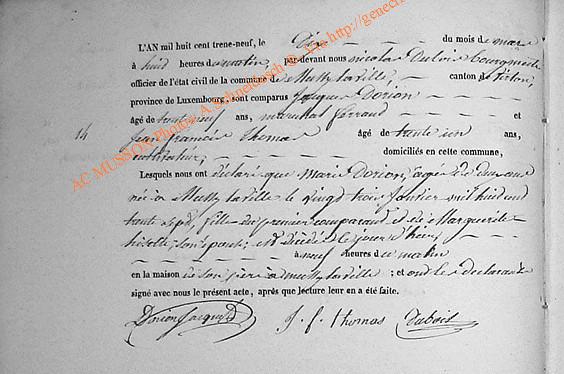 L'AN mil huit cent trene-neuf, le Dix du mois de mars
à huit heures du matin, par-devant nous nicolas Dubois bourgmestre
officier de l'état civil de la commune de Mussy la ville, canton de Virton,
province de Luxembourg, sont comparus Jacques Dorion
âgé de neuf ans, marechal ferrand et
14
Jean françois Thomas âgé de trente un ans,
cultivateur, domiciliés en cette commune,
Lesquels nous ont déclaré que marie Dorion, agée de deux ans
née à Mussy la ville le vingt trois janvier mil huit cent
trente sept, fille du premier comparant et de Marguerite
son épouse, est décédée le jour d'hier,
à neuf heures du matin
en la maison de son père à mussy la ville ; et ont les declarants
signé avec nous le présent acte, après que lecture leur en a été faite.
Dorion Jacques J. f. Thomas Dubois
AC MUSSON Photos A. Schneidesch © Via http://genech